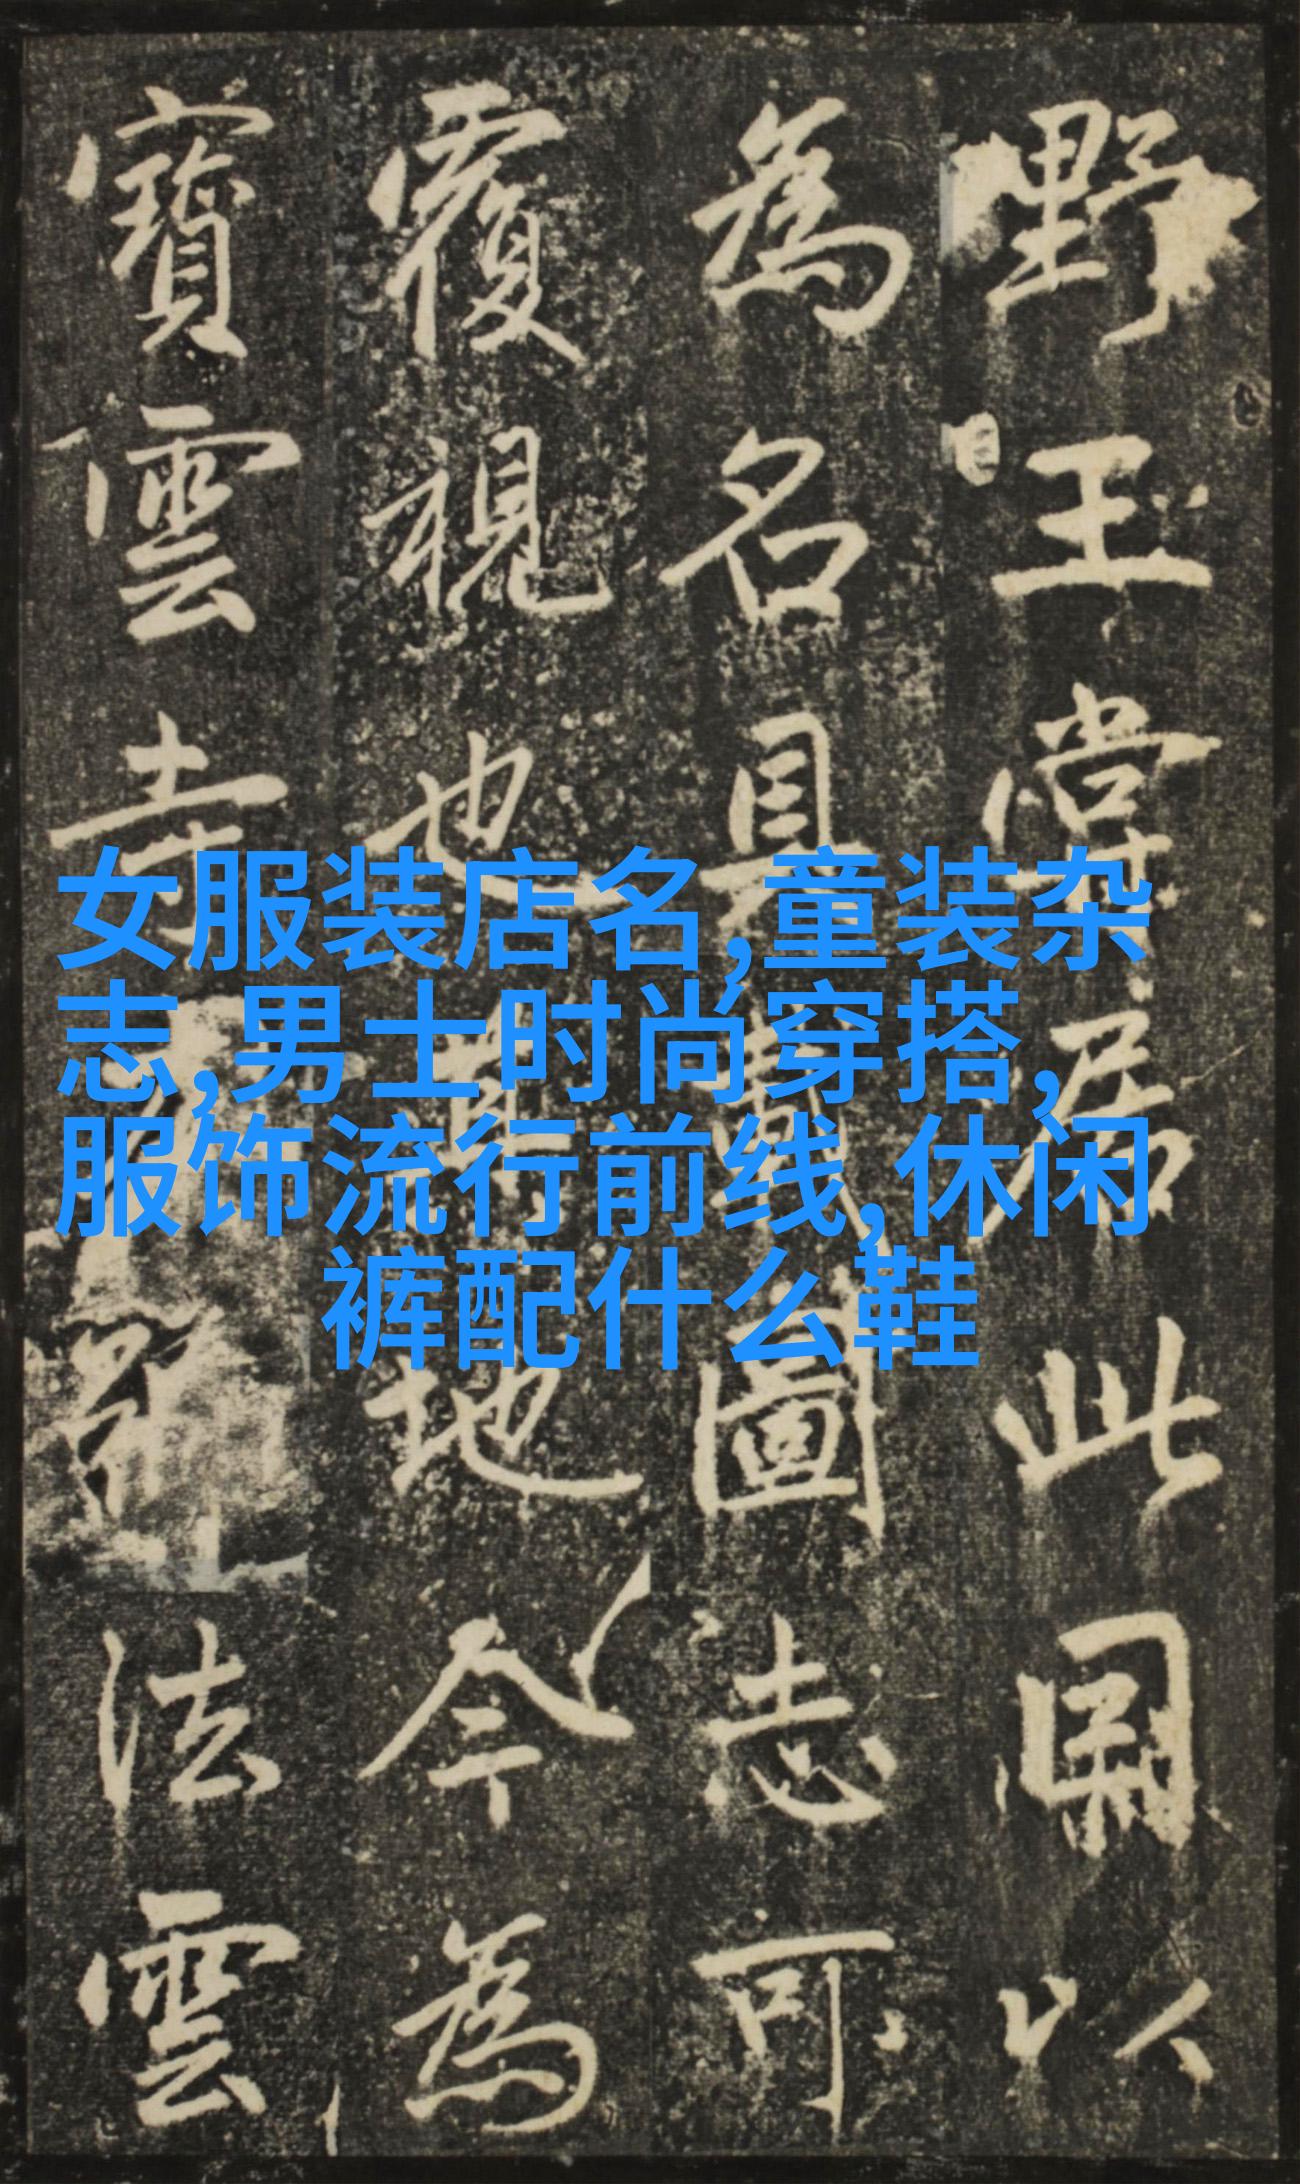 野王嘗居此以
為名具載圖志可
覆視也其地今為
寶雲寺法雲
女服装店名,童装杂
志,男士时尚穿搭,
服饰流行前线,休闲
裤配什么鞋